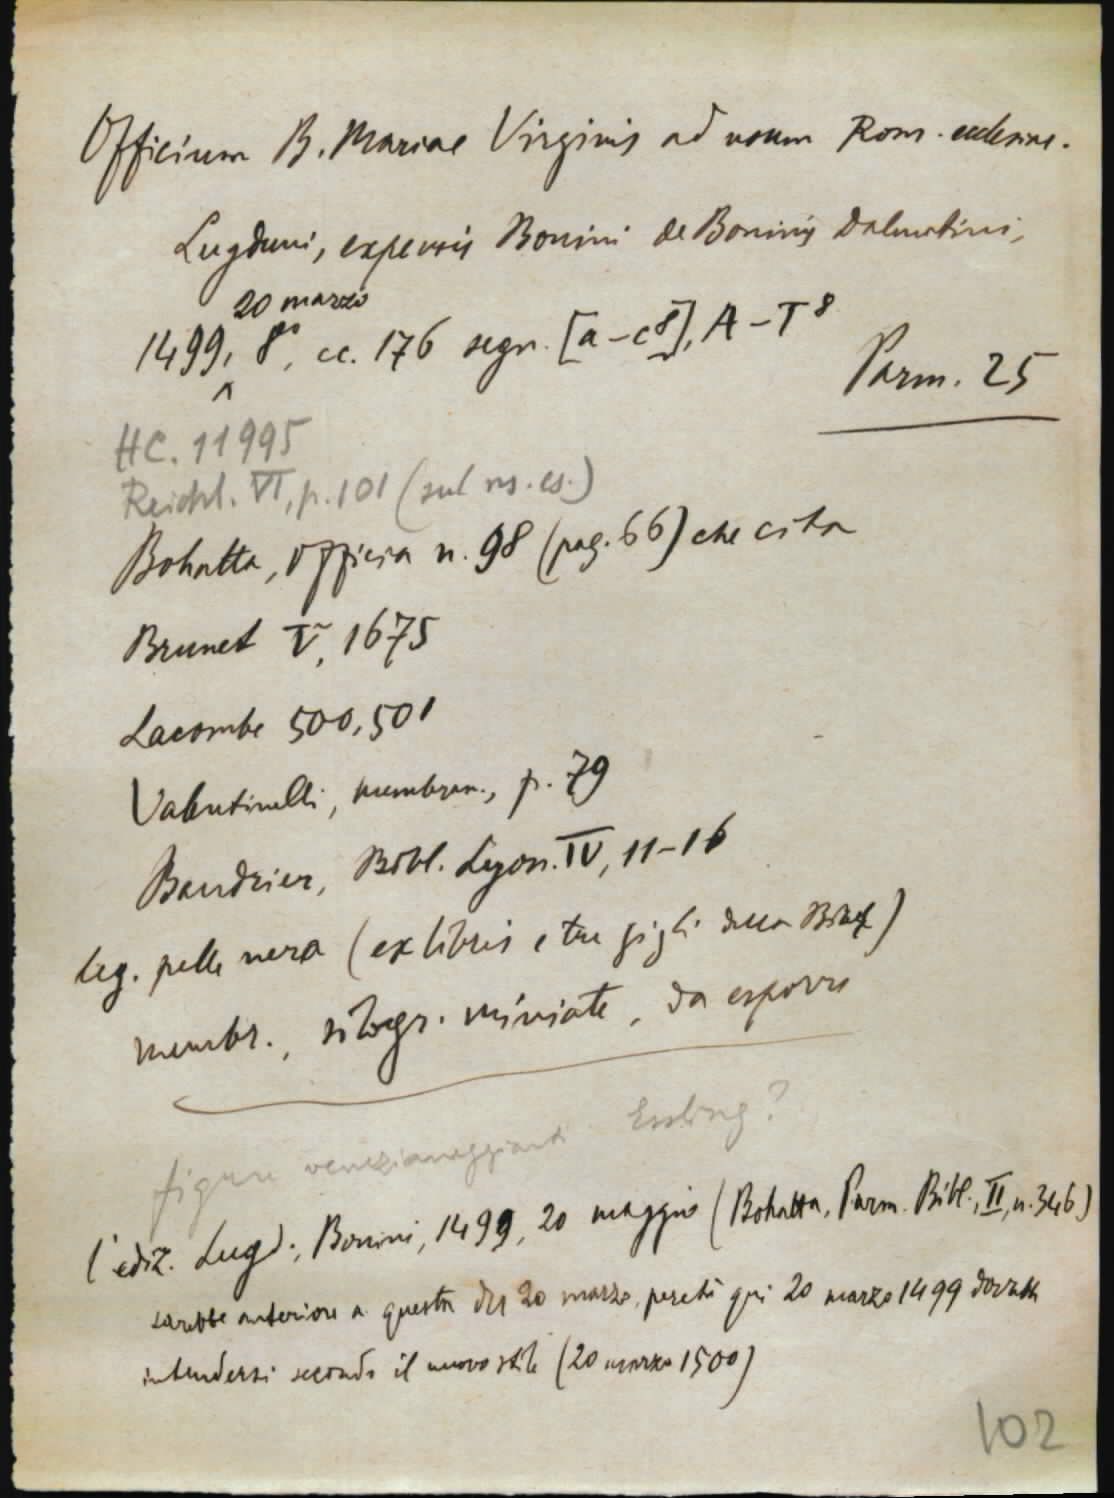 Officium B. Mariae Virginis ad usum Rom. ecclesiae.
Lugduni, expensis Bonini de Boninis Dalmatini,
20 marzo
1499, 8°, cc. 176 segn. [a-c8], A-T8
Parm. 25
HC. 11995
Reichl. VI, p. 101 (sul ns. es.)
Bohatta, Officia n. 98 (pag. 66) che cita
Brunet V, 1675
Lacombe 500, 501
Valentinelli, membran., p. 79
Baudrier, Bibl. Lyon. IV, 11-16
Leg. pelle nera (ex libris e tre gigli della)
membr., silogr. miniate, da esporre
figure venezianeggianti Essling?
l'ediz. Lugd., Bonini, 1499, 20 maggio (Bohatta, Parm. Bibl., II, n. 346)
sarebbe anteriore a questa del 20 marzo, perché qui 20 marzo 1499 dovrebbe
intendersi secondo il nuovo stile (20 marzo 1500)
102